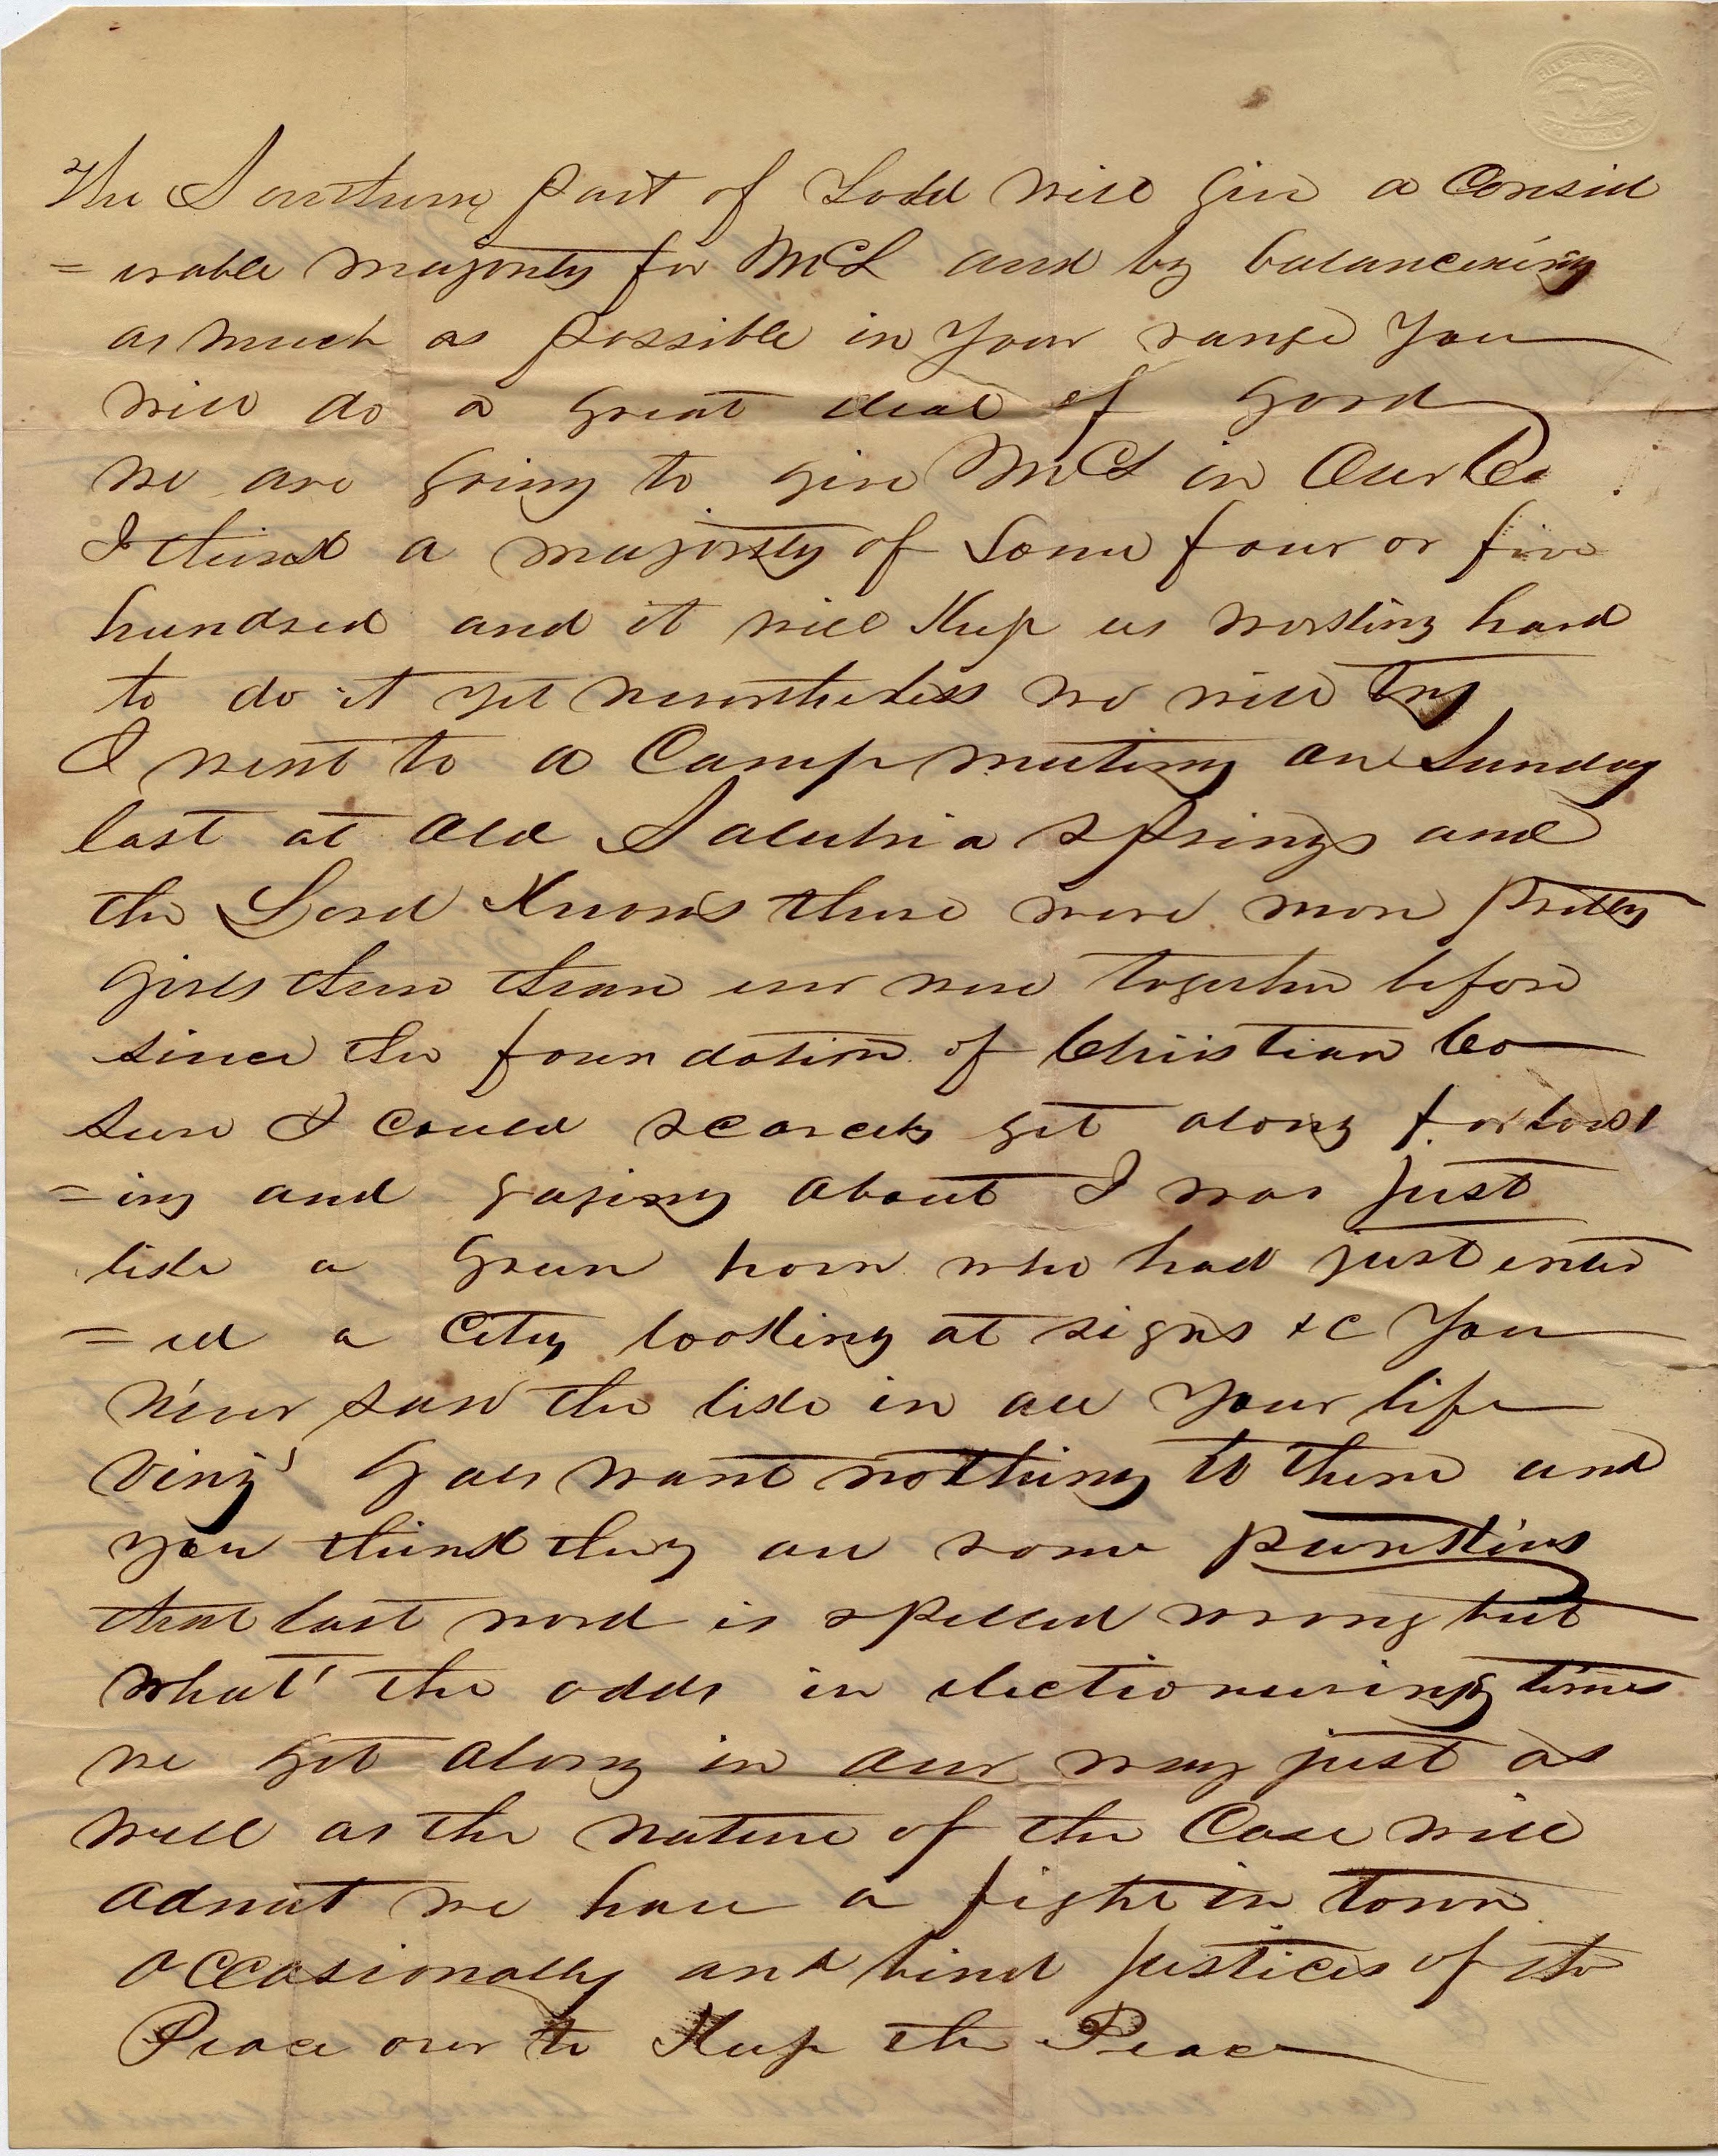 The Southern part of Todd will give a Consid
= erable majority for McL and by balanceing
as much as possible in Your range You
will do a great deal of good
we are going to give McL in Our Co
I think a majority of Some four or five
hundred and it will Keep us working hard
to do it yet nevertheless we will try
I went to a Camp meeting on Sunday
last at Old Salubria springs and
the Lord Knows there were more pretty
girls there than ever were together before
since the foundation of Christian Co
sure I could scarcely get along for look
= ing and gazing about I was just
like a Green horn who had just enter
= ed a City looking at signs &c You
never saw the like in all Your life
Gals want nothing to there and
you think they are some punkins
that last word is spelled wrong but
what' the odds in electioneering times
we get along in our way just as
well as the nature of the Case will
admit we have a fight in town
occasionally and bind justices of the
Peace over to Keep the Peace